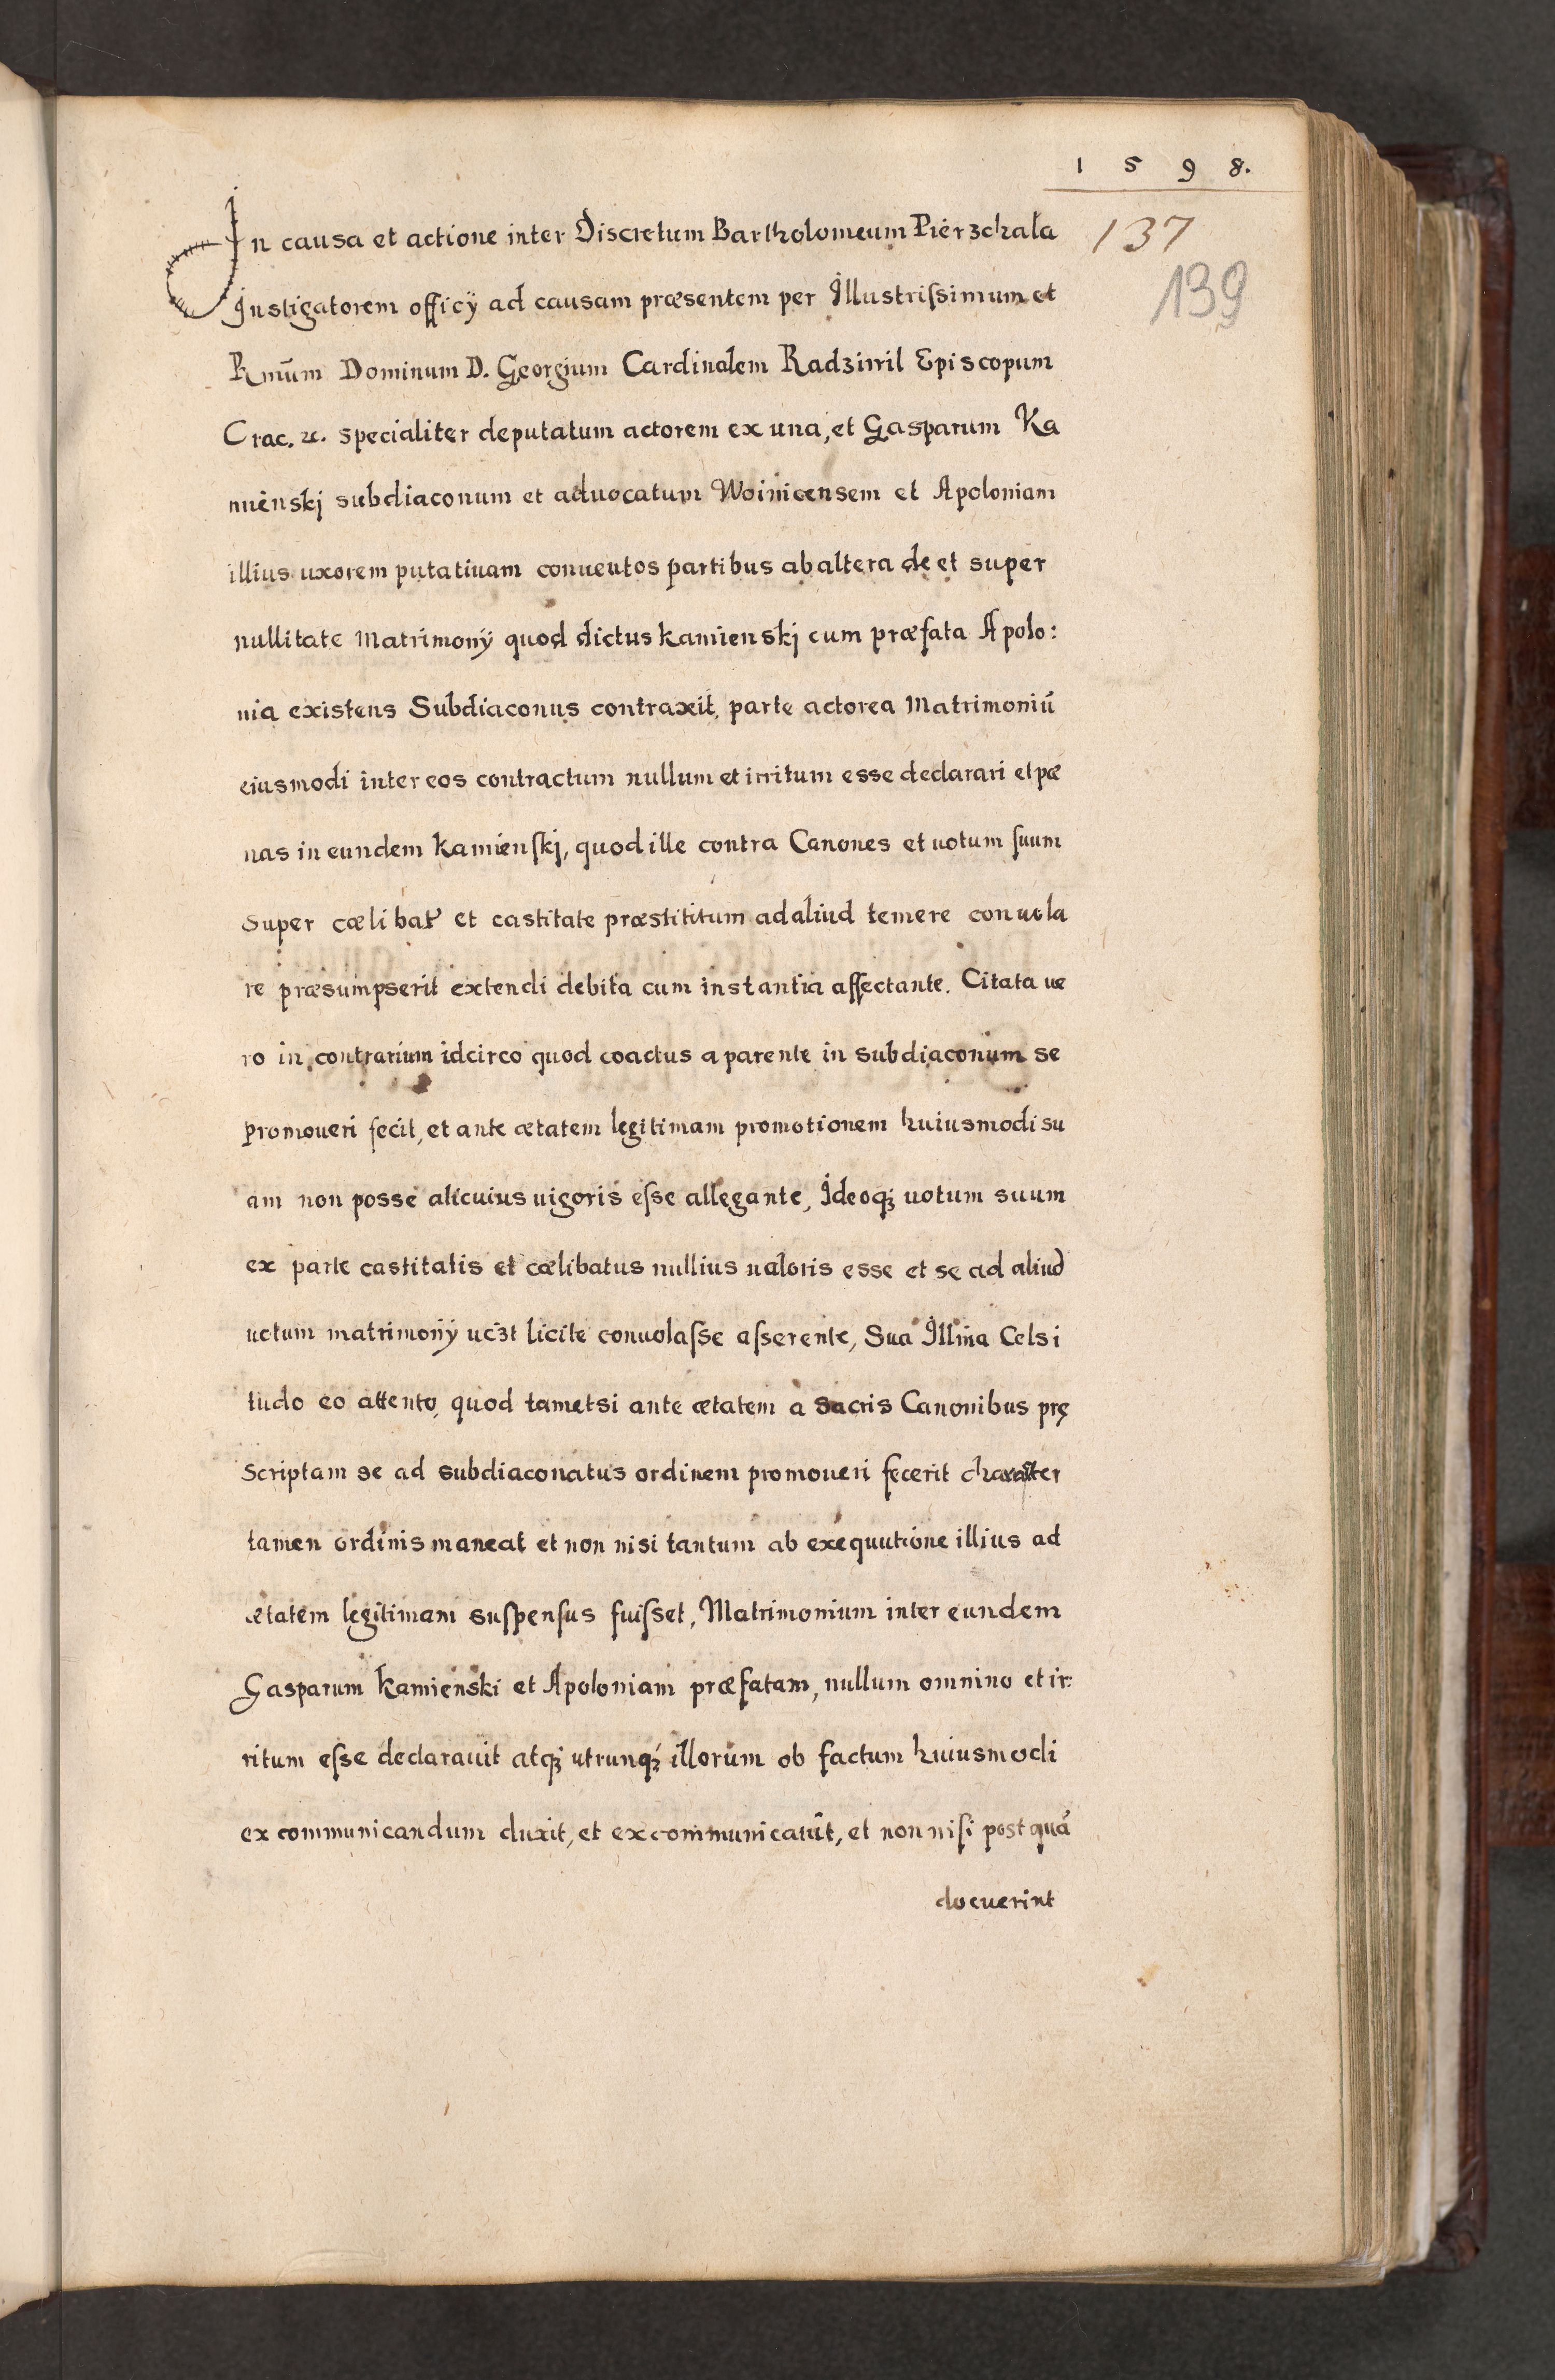 1 5 9 8.
137
139
In causa et actione inter Discretum Bartholomeum Pierzchala
Instigatorem officÿ ad causam præsentem per Illustrißimum et
Rmūm Dominum D. Georgium Cardinalem Radziwil Episcopum
Crac. &c. specialiter deputatum actorem ex una, et Gasparum Ka
mienskj subdiaconum et aduocatum Woinicensem et Apoloniam
illius uxorem putatiuam conuentos partibus ab altera de et super
nullitate Matrimonÿ quod dictus kamienskj cum præfata Apolo:
nia existens Subdiaconus contraxit, parte actorea Matrimoniū
eiusmodi inter eos contractum nullum et irritum esse declarari et pæ
nas in eundem kamienſkj, quod ille contra Canones et uotum ſuum
super cælibať et castitate præstititum ad aliud temere conuola
re præsumpserit extendi debita cum instantia affectante. Citata ue
ro in contrarium idcirco quod coactus a parente in subdiaconum se
promoueri fecit, et ante ætatem legitimam promotionem huiusmodi su
am non posse alicuius uigoris eſse allegante, Ideoqꝫ uotum suum
ex parte castitatis et cælibatus nullius ualoris esse et se ad aliud
uotum matrimonÿ uc̄ꝫt licite conuolaſse aſserente, Sua Illm̄a Celsi
tudo eo attento, quod tametsi ante ætatem a sacris Canonibus prę
scriptam se ad subdiaconatus ordinem promoueri fecerit character
tamen ordinis maneat et non nisi tantum ab exequutione illius ad
ætatem legitimam suſpenſus fuiſset, Matrimonium inter eundem
Gasparum kamienski et Apoloniam præfatam, nullum omnino et ir:
ritum eſse declarauit atqꝫ utrunqꝫ illorum ob factum huiusmodi
excommunicandum duxit, et excommunicauit, et non niſi postquā
docuerint